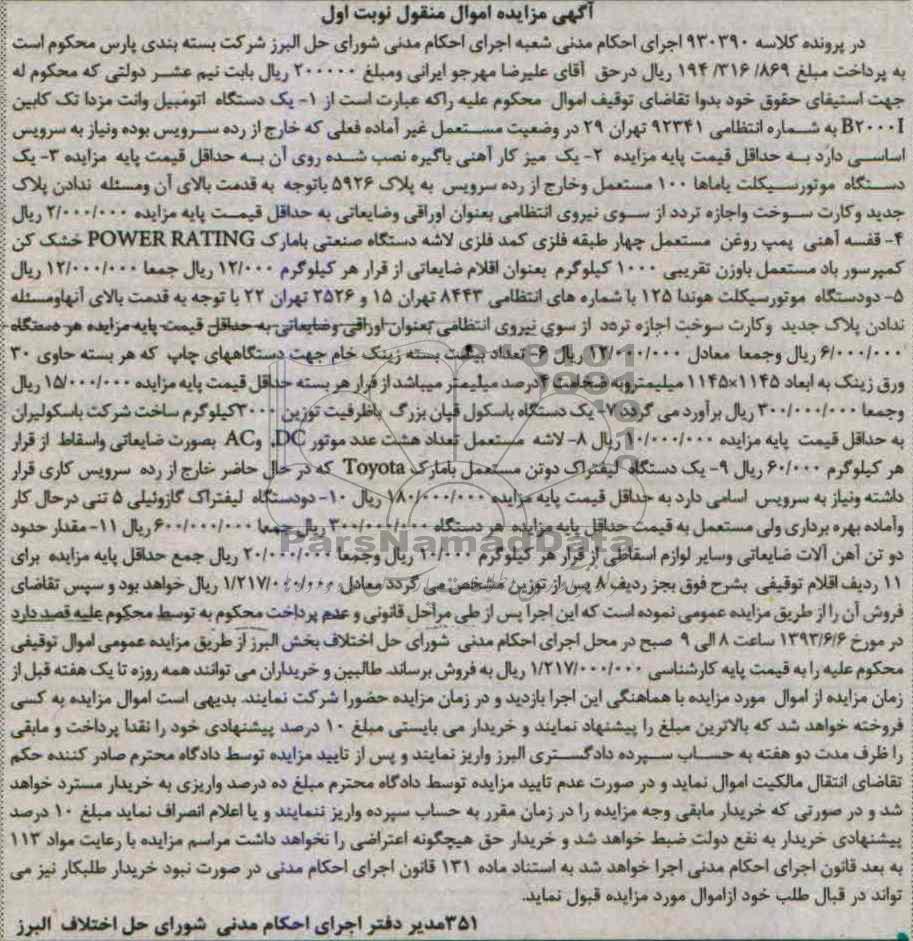 آگهی مزایده اموال منقول نوبت اول
در پرونده کلاسه ۹۳۰۳۹۰ اجرای احکام مدنی شعبه اجرای احکام مدنی شورای حل البرز شرکت بسته بندی پارس محکوم است
به پرداخت مبلغ ۸۶۹/ ۳۱۶/ ۱۹۴ ریال درحق آقای علیرضا مهرجو ایرانی ومبلغ ۲۰۰۰۰۰۰ ریال بابت نیم عشر دولتی که محکوم له
جهت استیفای حقوق خود بدوا تقاضای توقیف اموال محکوم علیه راکه عبارت است از ۱- یک دستگاه اتومبیل وانت مزدا تک کابین
B۲۰۰۰I به شماره انتظامی ۹۲۳۴۱ تهران ۲۹ در وضعیت مستعمل غیر آماده فعلی که خارج از رده سرویس بوده ونیاز به سرویس
اساسی دارد به حداقل قیمت پایه مزایده ۲- یک میز کار آهنی باگیره نصب شده روی آن به حداقل قیمت پایه مزایده ۳- یک
دستگاه موتورسیکلت یاماها ۱۰۰ مستعمل وخارج از رده سرویس به پلاک ۵۹۲۶ باتوجه به قدمت بالای آن ومسئله ندادن پلاک
جدید وکارت سوخت واجازه تردد از سوی نیروی انتظامی بعنوان اوراقی وضایعاتی به حداقل قیمت پایه مزایده ۲/۰۰۰/۰۰۰ ریال
۴- قفسه آهنی پمپ روغن مستعمل چهار طبقه فلزی کمد فلزی لاشه دستگاه صنعتی بامارک POWER RATING خشک کن
کمپرسور باد مستعمل باوزن تقریبی ۱۰۰۰ کیلوگرم بعنوان اقلام ضایعاتی از قرار هر کیلوگرم ۱۲/۰۰۰ ریال جمعا ۱۲/۰۰۰/۰۰۰ ریال
۵- دودستگاه موتورسیکلت هوندا ۱۲۵ با شماره های انتظامی ۸۴۴۳ تهران ۱۵ و ۲۵۲۶ تهران ۲۲ با توجه به قدمت بالای آنهاومسئله
ندادن پلاک جدید وکارت سوخت اجازه تردد از سوی نیروی انتظامی بعنوان اوراقی وضایعاتی به حداقل قیمت پایه مزایده هر دستگاه
۶/۰۰۰/۰۰۰ ریال وجمعا معادل ۱۲/۰۰۰/۰۰۰ ریال ۶- تعداد بیست بسته زینک خام جهت دستگاههای چاپ که هر بسته حاوی ۳۰
ورق زینک به ابعاد ۱۱۴۵×۱۱۴۵ میلیمتروبه ضخامت ۴درصد میلیمتر میباشد از قرار هر بسته حداقل قیمت پایه مزایده ۱۵/۰۰۰/۰۰۰ ریال
وجمعا ۳۰۰/۰۰۰/۰۰۰ ریال برآورد می گردد ۷- یک دستگاه باسکول قپان بزرگ باظرفیت توزین ۳۰۰۰کیلوگرم ساخت شرکت باسکولیران
به حداقل قیمت پایه مزایده ۱۰/۰۰۰/۰۰۰ ریال ۸- لاشه مستعمل تعداد هشت عدد موتور DC، وAC بصورت ضایعاتی واسقاط از قرار
هر کیلوگرم ۶۰/۰۰۰ ریال ۹- یک دستگاه لیفتراک دوتن مستعمل بامارک Toyota که در حال حاضر خارج از رده سرویس کاری قرار
داشته ونیاز به سرویس اسامی دارد به حداقل قیمت پایه مزایده ۱۸۰/۰۰۰/۰۰۰ ریال ۱۰- دودستگاه لیفتراک گازوئیلی ۵ تنی درحال کار
وآماده بهره برداری ولی مستعمل به قیمت حداقل پایه مزایده هر دستگاه ۳۰۰/۰۰۰/۰۰۰ ریال جمعا ۶۰۰/۰۰۰/۰۰۰ ریال ۱۱- مقدار حدود
دو تن آهن آلات ضایعاتی وسایر لوازم اسقاطی از قرار هر کیلوگرم ۱۰/۰۰۰ ریال وجمعا ۲۰/۰۰۰/۰۰۰ ریال جمع حداقل پایه مزایده برای
۱۱ ردیف اقلام توقیفی بشرح فوق بجز ردیف ۸ پس از توزین مشخص می گردد معادل ۱/۲۱۷/۰۰۰/۰۰۰ ریال خواهد بود و سپس تقاضای
فروش آن را از طریق مزایده عمومی نموده است که این اجرا پس از طی مراحل قانونی و عدم پرداخت محکوم به توسط محکوم علیه قصد دارد
در مورخ ۱۳۹۳/۶/۶ ساعت ۸ الی ۹ صبح در محل اجرای احکام مدنی شورای حل اختلاف بخش البرز از طریق مزایده عمومی اموال توقیفی
محکوم علیه را به قیمت پایه کارشناسی ۱/۲۱۷/۰۰۰/۰۰۰ ریال به فروش برساند. طالبین و خریداران می توانند همه روزه تا یک هفته قبل از
زمان مزایده از اموال مورد مزایده با هماهنگی این اجرا بازدید و در زمان مزایده حضورا شرکت نمایند. بدیهی است اموال مزایده به کسی
فروخته خواهد شد که بالاترین مبلغ را پیشنهاد نمایند و خریدار می بایستی مبلغ ۱۰ درصد پیشنهادی خود را نقدا پرداخت و مابقی
را ظرف مدت دو هفته به حساب سپرده دادگستری البرز واریز نمایند و پس از تایید مزایده توسط دادگاه محترم صادر کننده حکم
تقاضای انتقال مالکیت اموال نماید و در صورت عدم تایید مزایده توسط دادگاه محترم مبلغ ده درصد واریزی به خریدار مسترد خواهد
شد و در صورتی که خریدار مابقی وجه مزایده را در زمان مقرر به حساب سپرده واریز ننمایند و یا اعلام انصراف نماید مبلغ ۱۰ درصد
پیشنهادی خریدار به نفع دولت ضبط خواهد شد و خریدار حق هیچگونه اعتراضی را نخواهد داشت مراسم مزایده با رعایت مواد ۱۱۳
به بعد قانون اجرای احکام مدنی اجرا خواهد شد به استناد ماده ۱۳۱ قانون اجرای احکام مدنی در صورت نبود خریدار طلبکار نیز می
تواند در قبال طلب خود ازاموال مورد مزایده قبول نماید.
۳۵۱مدیر دفتر اجرای احکام مدنی شورای حل اختلاف البرز
ParsNamadData